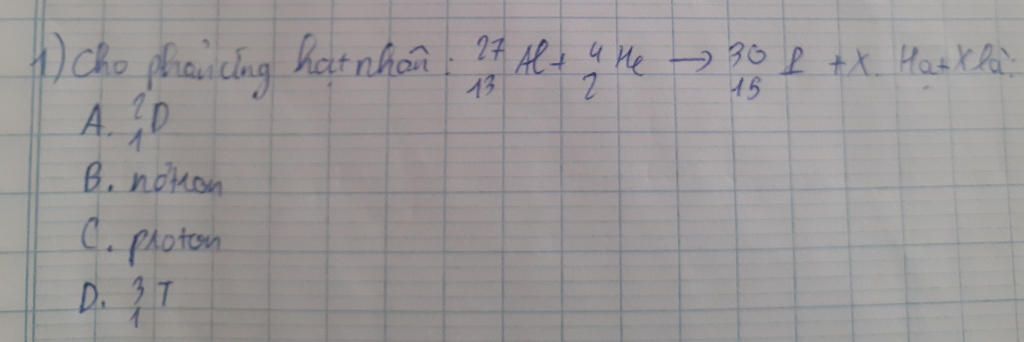 1) Cho phản ứng hạt nhân: ²⁷₁₃Al + ⁴₂He → ³⁰₁₅P + X. Hạt X là:
A. ²₁D
B. nơtron
C. proton
D. ³₁T